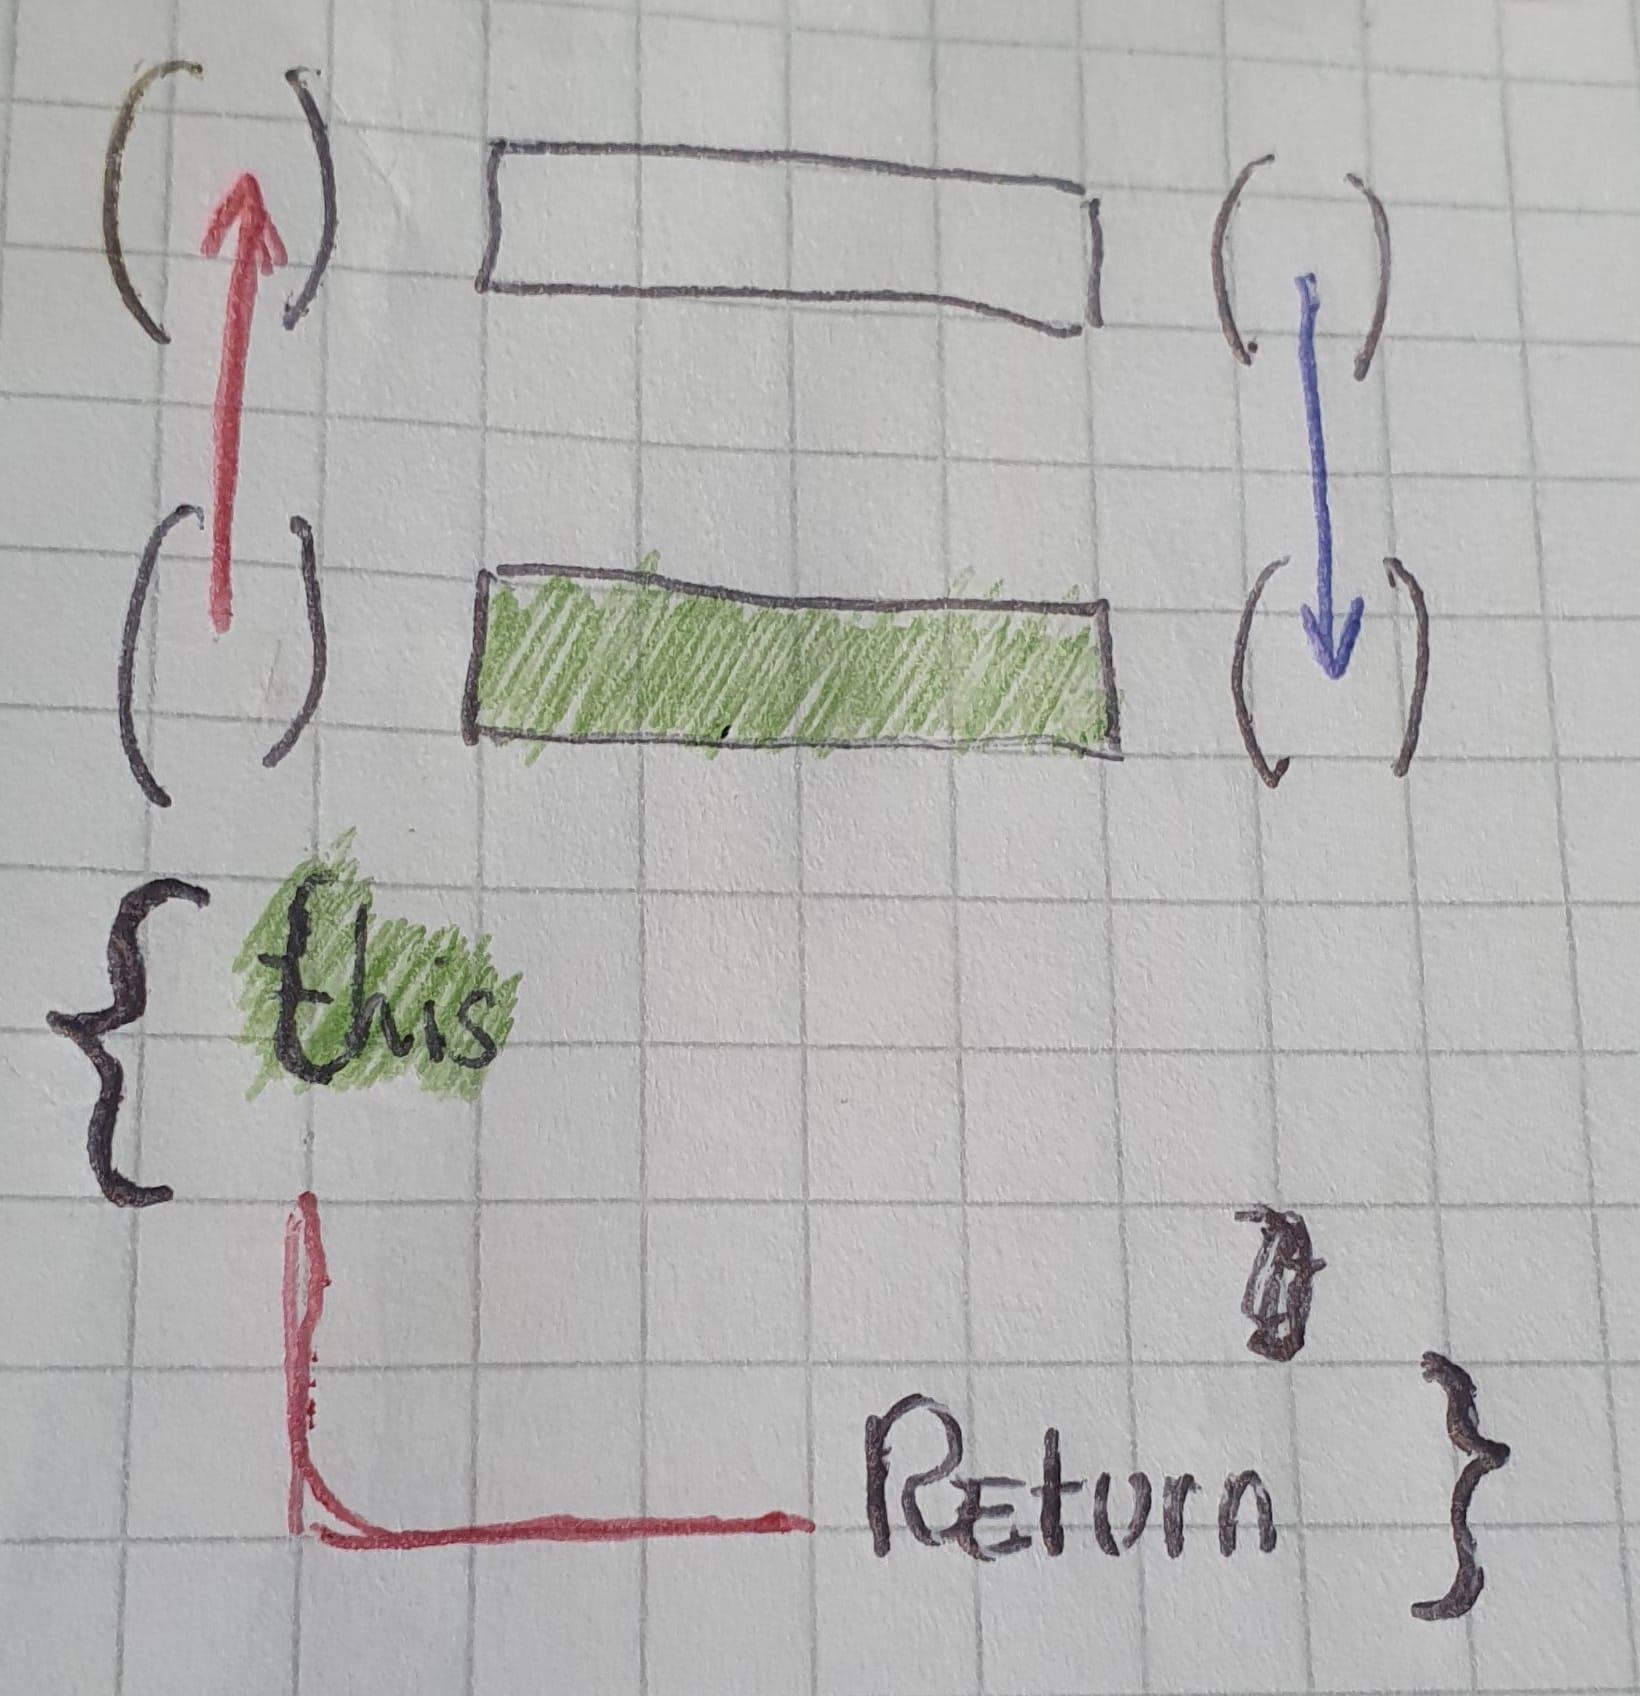 ( ) ( )
( ) ( )
{ this
Return }